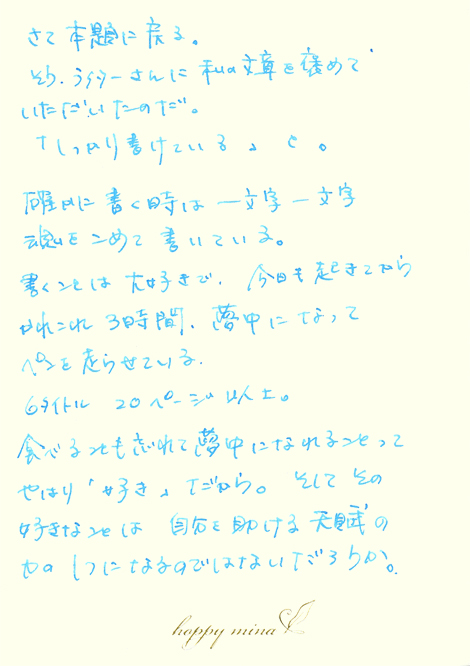 さて本題に戻る。
そう、ライターさんに私の文章を褒めて
いただいたのだ。
「しっかり書けている」と。
確かに書く時は一文字一文字
魂をこめて書いている。
書くことは大好きで、今日も起きてから
かれこれ3時間、夢中になって
ペンを走らせている。
6タイトル 20ページ以上。
食べることも忘れて夢中になれることって
やはり「好き」だから。そしてその
好きなことは 自分を助ける天賦の
力の1つになるのではないだろうか。
happy mina